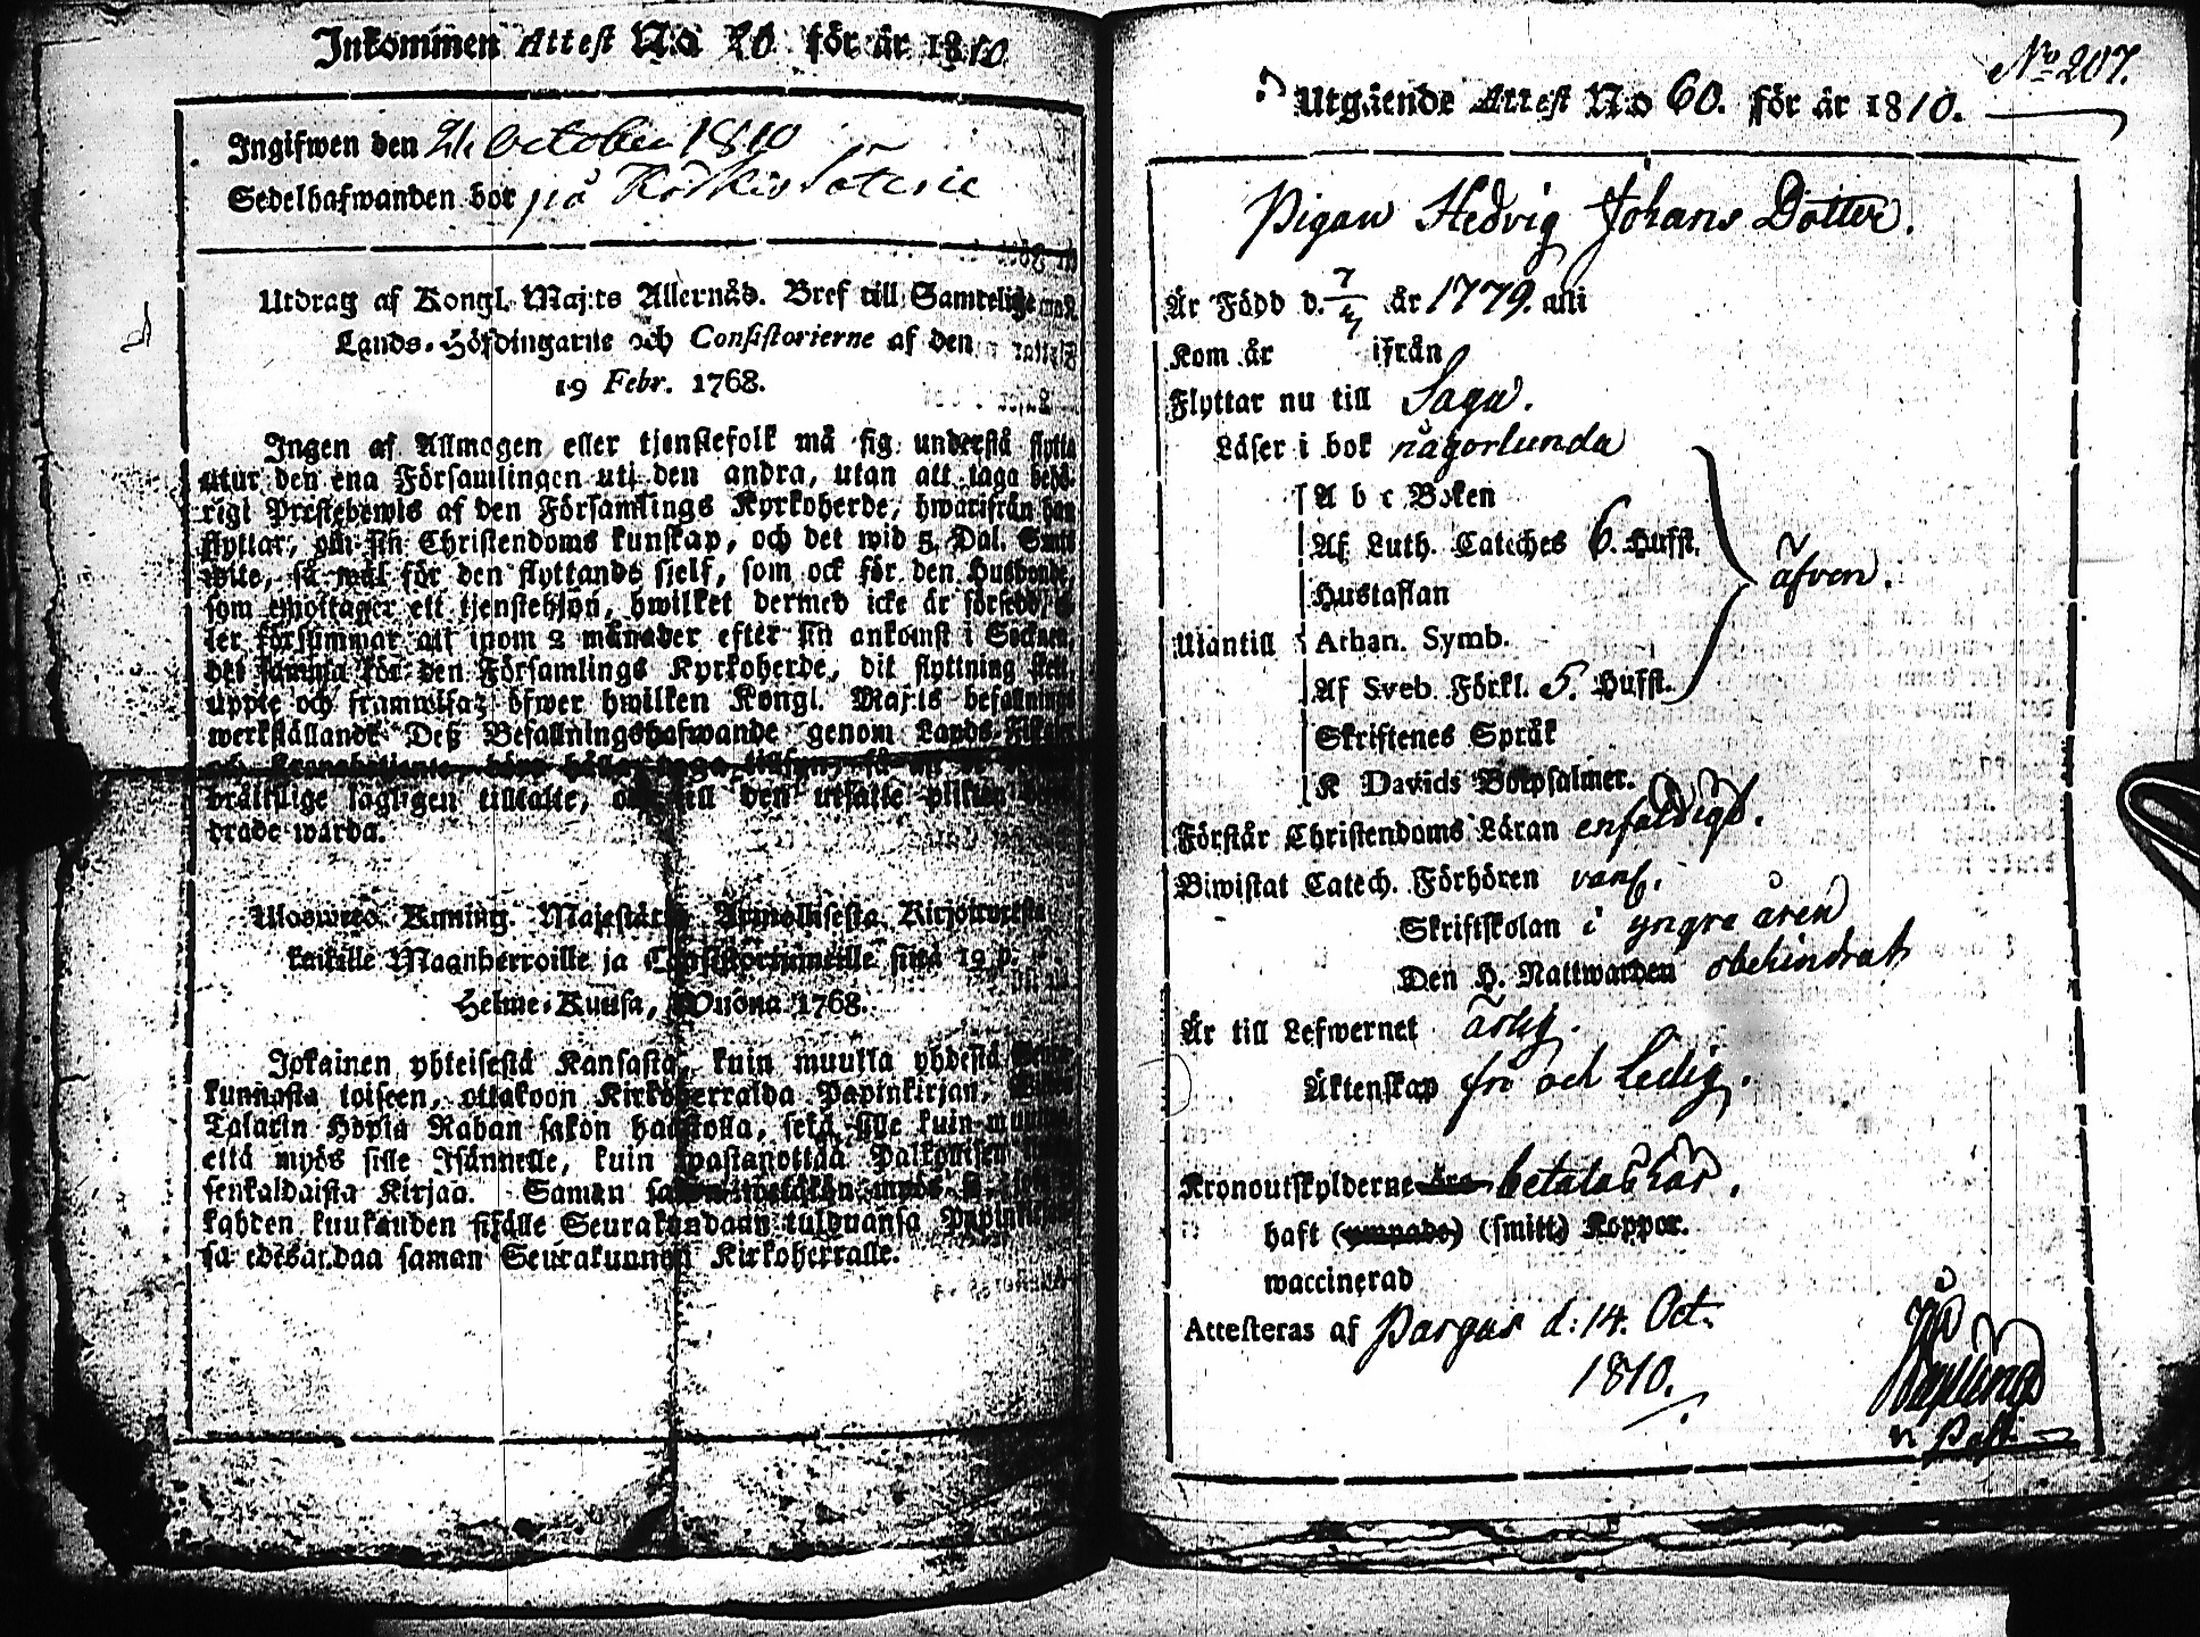 Inkommen Attest N:o 20 för år 1810
Ingifwen den 21 October 1810
Sedelhafwanden bor på
Utdrag af Kongl. Maj:ts Allernåd. Bref till Samtelige
Lands-Höfdingarne och Consistorierne af den
19 Febr. 1768.
Ingen af Allmogen eller tjenstefolk må sig understå flytta
utur den ena Församlingen uti den andra, utan att taga behö-
rigt Prestebewis af den Församlings Kyrkoherde, hwarifrån han
flyttar, om sin Christendoms kunskap, och det wid 5 Dal. Smt
wite, så wäl för den flyttande sjelf, som ock för den Husbonde,
som emottager ett tjenstehjon, hwilket dermed icke är försedt, el-
ler försummar att inom 2 månader efter sin ankomst i Socknen,
det samma för den Församlings Kyrkoherde, dit flyttning skett,
uppte och framwisa; öfwer hwilken Kongl. Maj:ts befallnings
werkställande Deß Befallningshafwande genom Lands-Fiskaler
och Kronobetjente
lagligen tilltalte, den utsatte plikten
drade warda.
Ulosweto Kuning. Majestätin Armollisesta Kirjoituxesta
kaikille Maanherroille ja Consistoriumeille siitä 19 p.
Helme-Kuusa, Wuonna 1768.
Jokainen yhteisestä Kansasta, kuin muulla yhdestä Seura-
kunnasta toiseen, ottakoon Kirkoherralda Papinkirjan,
Talarin Hopia Rahan sakon haastolla, sekä sille kuin muutta
että myös sille Isännelle, kuin wastanottaa Palkollisen
senkaldaista Kirjaa. Saman sakon
kahden kuukauden sisälle Seurakundaan tulduansa Papinkirjan-
sa edesanda saman Seurakunnan Kirkoherralle.
N:o 207.
Utgående Attest N:o 60. för år 1810.
Pigan Hedvig Johans Dotter.
Är Född d. 7/4 år 1779. uti
Kom år ifrån
Flyttar nu till Sagu.
Läser i bok någorlunda
A b c Boken
Af Luth. Cateches 6. Hufst.
äfven.
Hustaflan
Utantill Athan. Symb.
Af Sveb. Förkl. 5. Hufst.
Skriftenes Språk
K Davids Botpsalmer.
Förstår Christendoms Läran enfaldigt.
Biwistat Catech. Förhören
Skriftskolan i yngre åren
Den H. Nattwarden obehindrat
Är till Lefwernet ärlig.
Äktenskap fri och Ledig.
Kronoutskylderne äro betalat här.
haft (ympade) (smitt) Koppor.
waccinerad
Attesteras af Pargas d: 14. Oct.
1810.